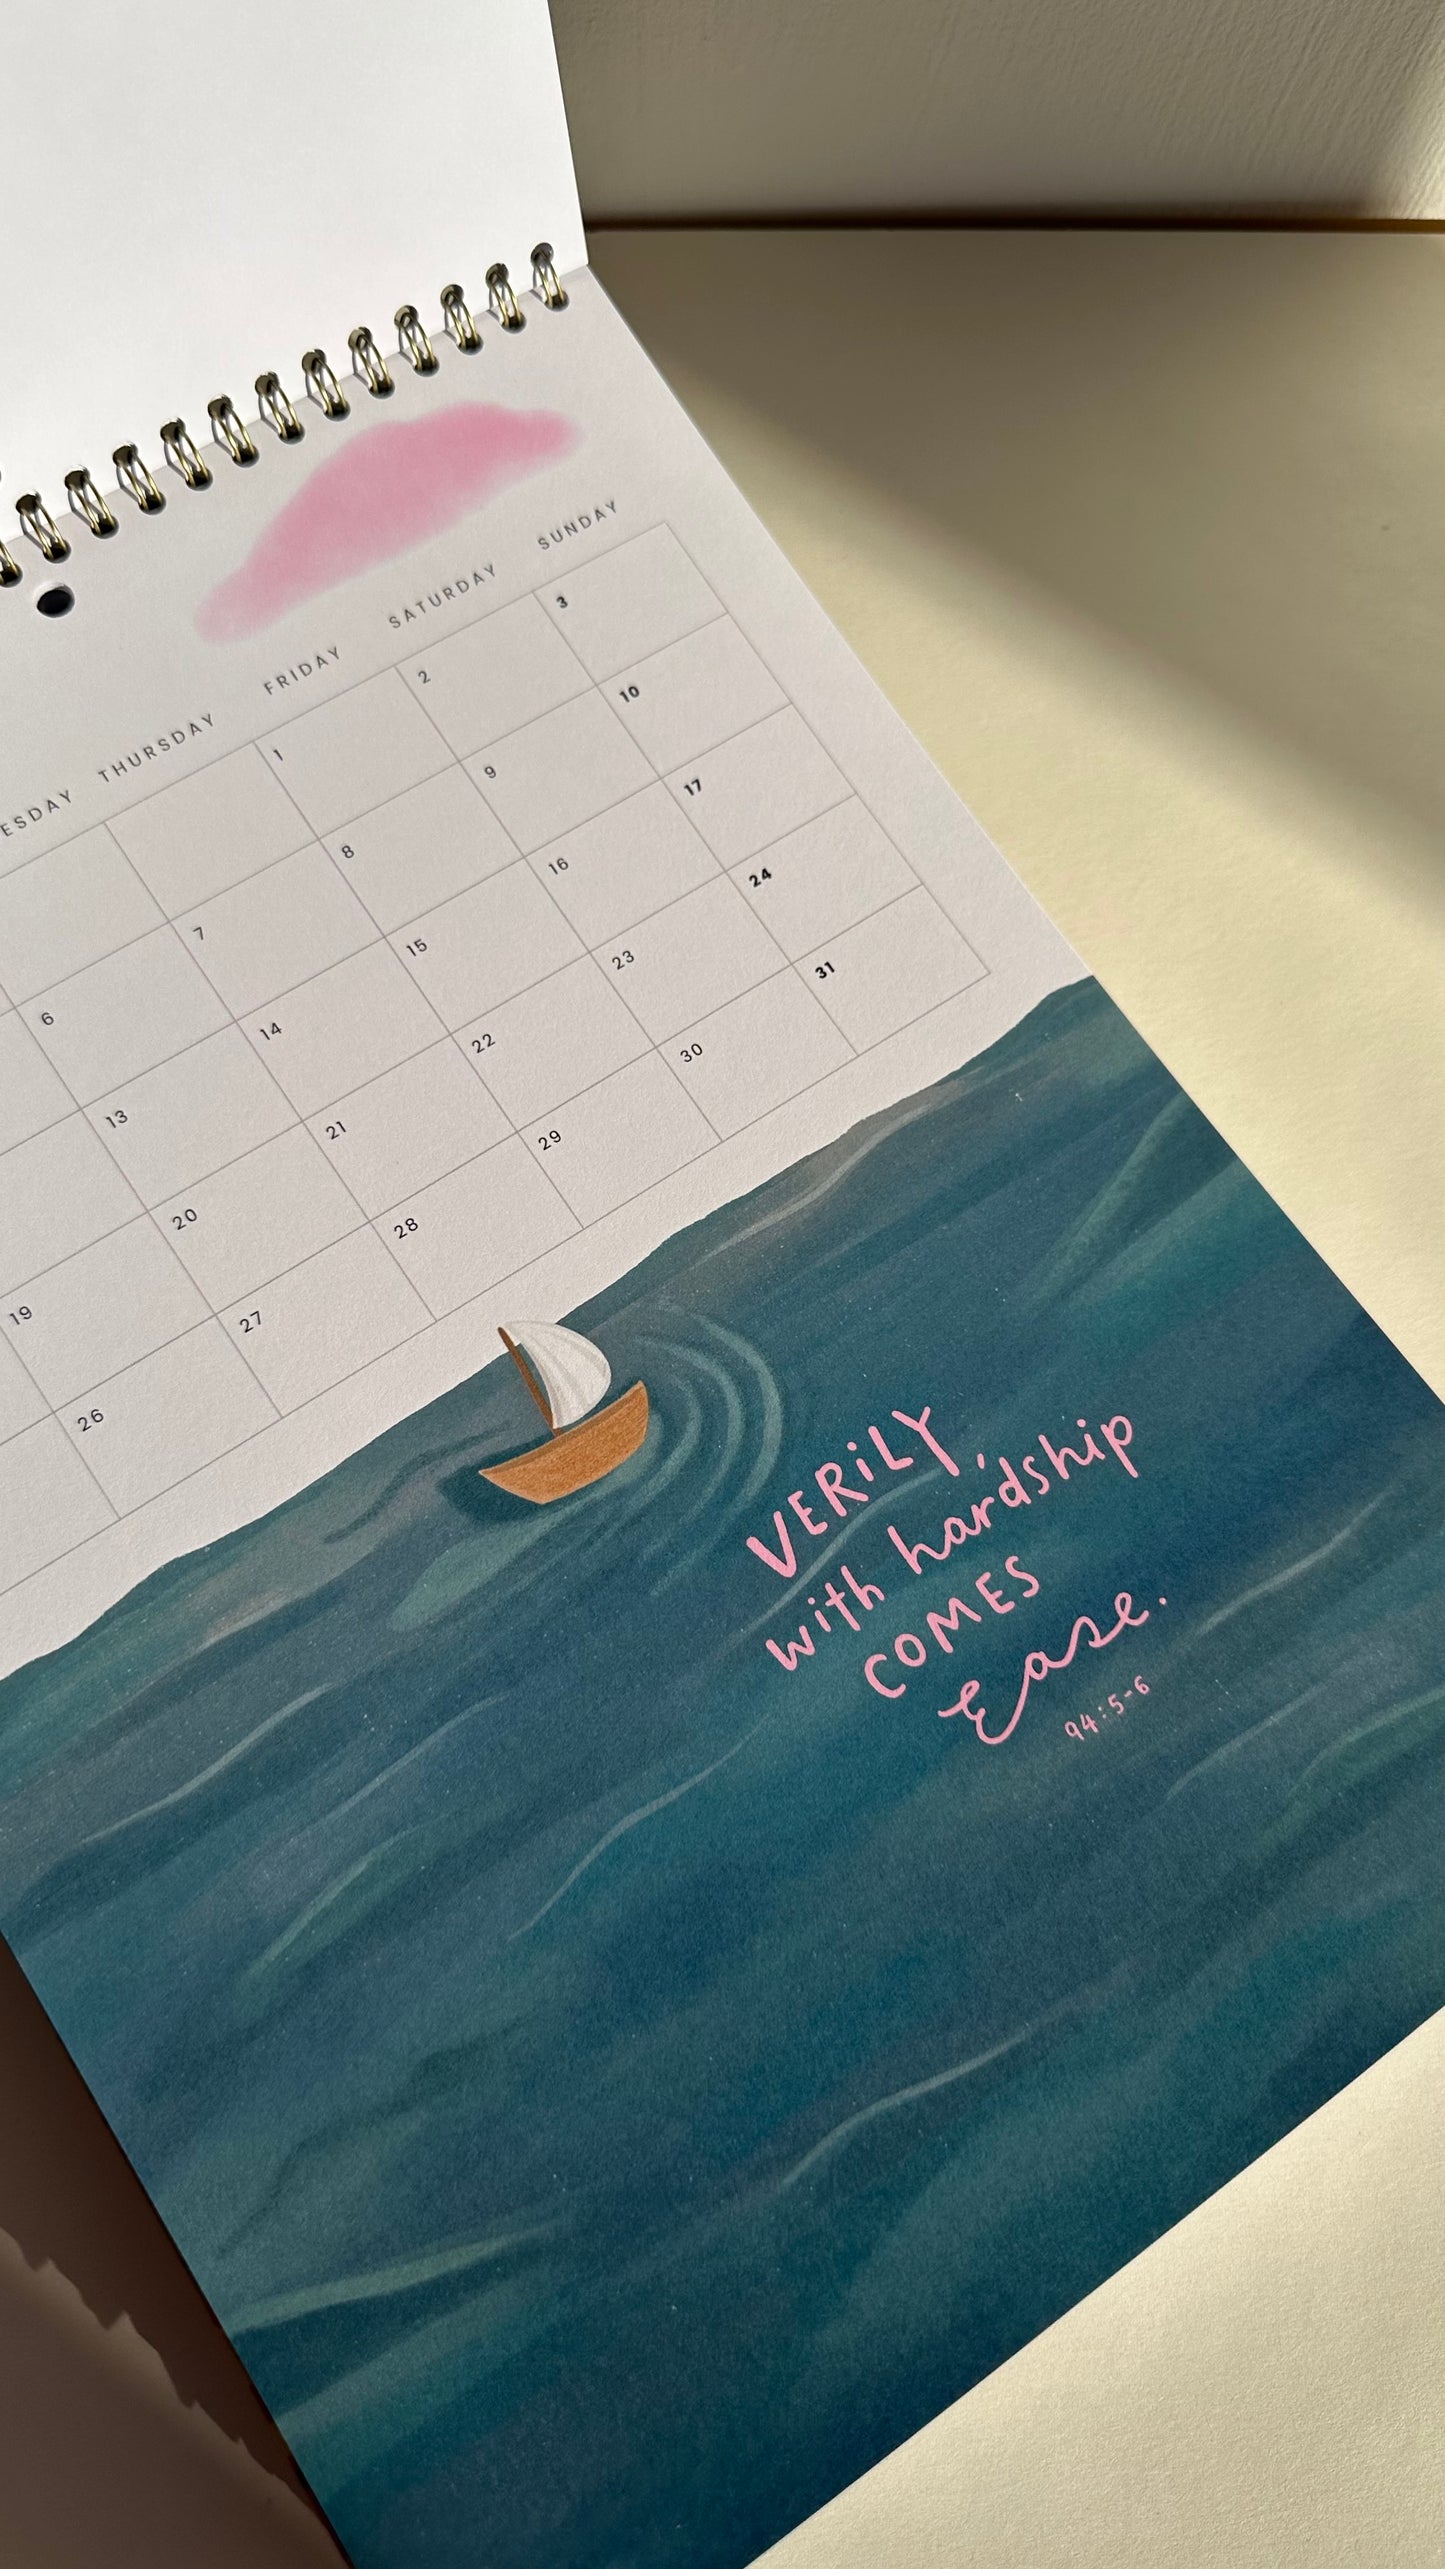 ESDAY THURSDAY FRIDAY SATURDAY SUNDAY
1 2 3
6 7 8 9 10
13 14 15 16 17
19 20 21 22 23 24
26 27 28 29 30 31
VERiLY,
with hardship
COMES
Ease.
94:5-6